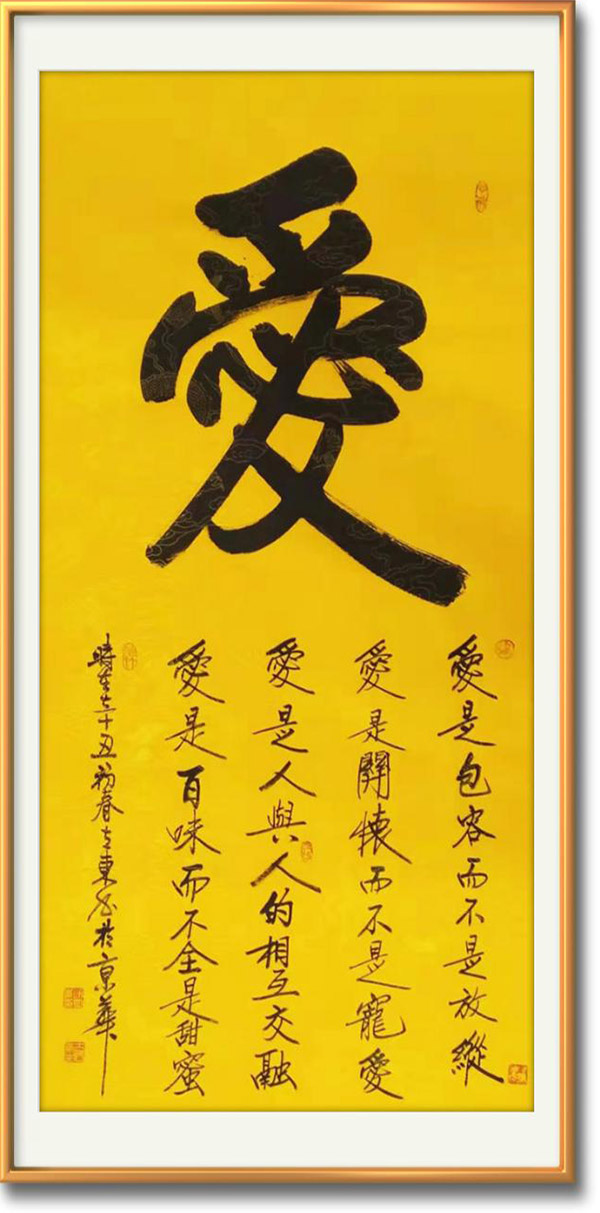 愛
愛是包容而不是放縱
愛是關懷而不是寵愛
愛是人與人的相互交融
愛是百味而不全是甜蜜
時在辛丑初春東书於京華